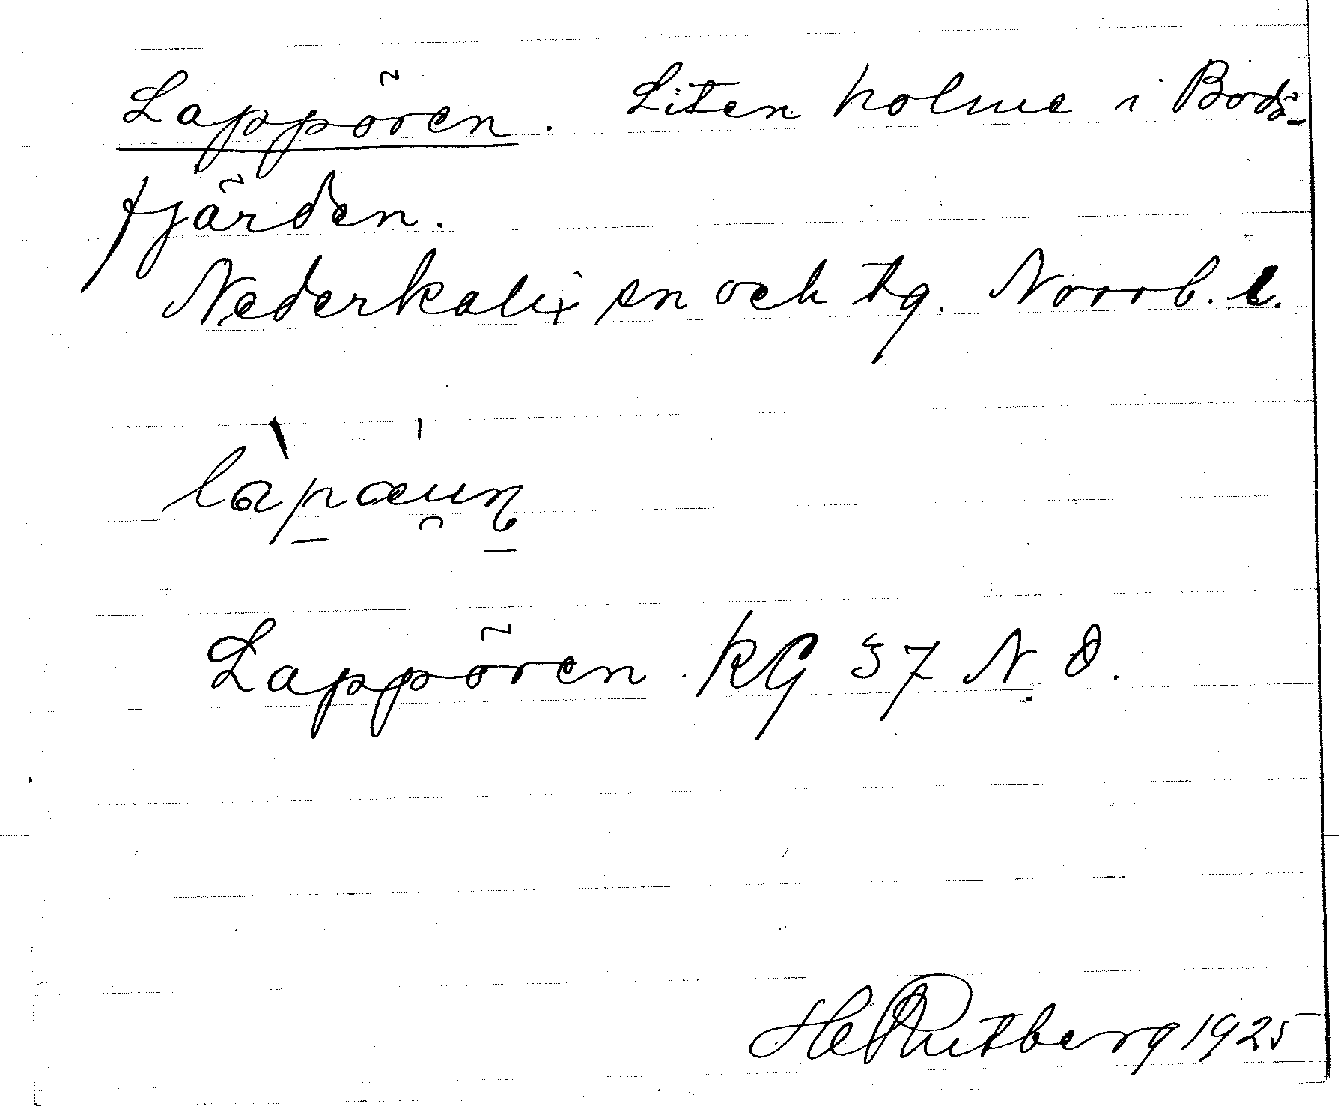 Lappören. Liten holme i Bodö-
fjärden.
Nederkalix sn och tg. Norrb. l.
làpæun
Lappören. KG 37 N. O.
HERutberg 1925